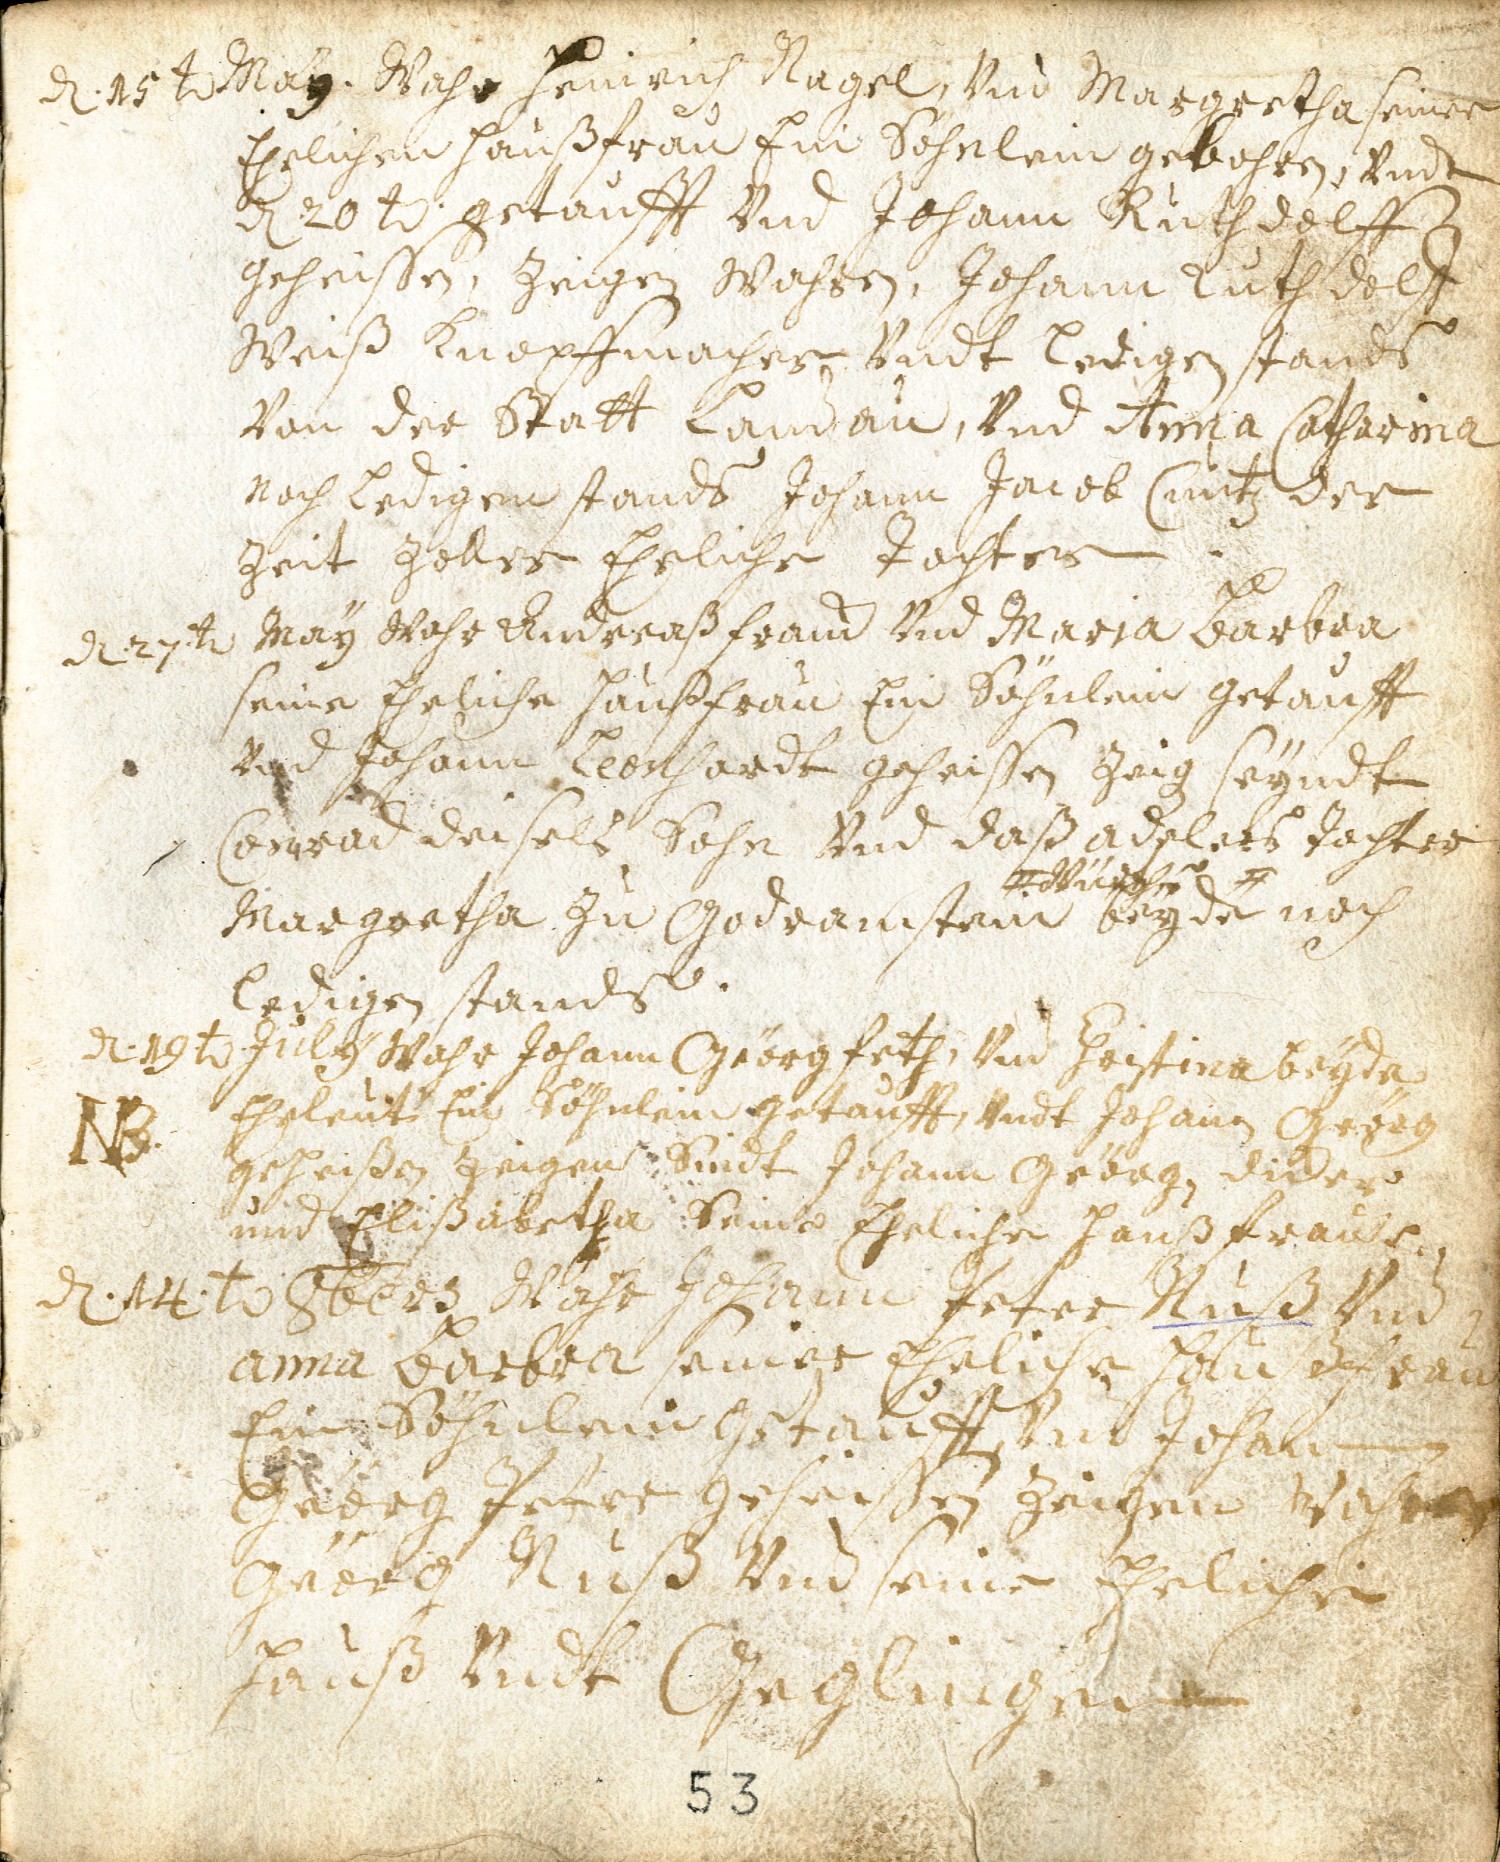 d. 15 t. May. Wahr Heinrich Nagel, Vnd Margretha seiner
Ehelichen Haußfrau Ein Söhnlein gebohren, Vndt
d 20 t. getaufft Vnd Johann Ruthdelff
geheissen, Zeigen Wahren, Johann Ruthdelff
Weiß Knopffmacher Vndt Ledigen stands
Von der Statt Landau, Vnd Anna Catharina
noch Ledigem stands Johann Jacob Cuntz der
Zeit Zoller Eheliche Tochter.
d. 27. t. May Wahr Andreaß frand Vnd Maria Barbra
seine Eheliche Haußfrau Ein Söhnlein getaufft
Vnd Johann Leonhardt geheissen Zeig seyndt
Conrad Sohn Vnd daß adelers Tochter
Margretha Zu Godramstein beyde noch
Ledigen stands.
d. 19 t. July Wahr Johann Geörg feth, Vnd Christina beyde
NB. Eheleut Ein Söhnlein getaufft, Vndt Johann Geörg
geheißen Zeigen Sindt Johann Geörg, dider
und Elißabetha Seine Eheliche Haußfrau
d. 14. t. 8bers Wahr Johann Peter Nuß Vnd
anna Barbra seiner Eheliche Haußfrau
Ein Söhnlein Getaufft, Vnd Johan
Geörg Peter geheissen Zeigen Wahren
Geörg Nuß Vnd seine Eheliche
Hauß Vndt Geglingen
53